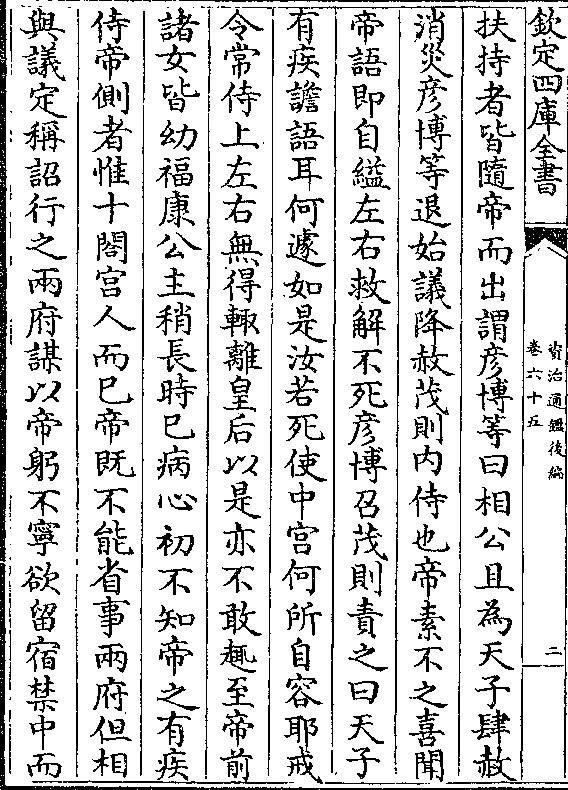 欽定四庫全書
資治通鑑後編
卷六十五
二
扶持者皆隨帝而出謂彥博等曰相公且為天子肆赦
消災彥博等退始議降赦茂則内侍也帝素不之喜聞
帝語即自縊左右救解不死彥博召茂則責之曰天子
有疾譫語耳何遽如是汝若死使中宫何所自容耶戒
令常侍上左右無得輙離皇后以是亦不敢趣至帝前
諸女皆幼福康公主稍長時已病心初不知帝之有疾
侍帝側者惟十閤宫人而已帝既不能省事兩府但相
與議定稱詔行之兩府謀以帝躬不寧欲留宿禁中而